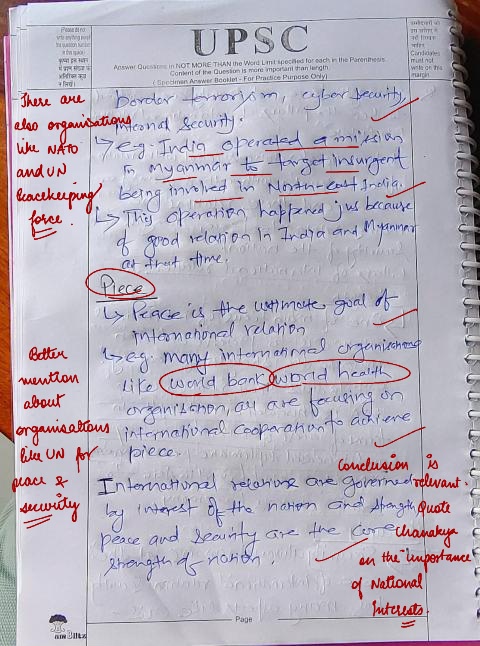 (Please do not write anything except the question number in this space)
कृपया इस स्थान में प्रश्न संख्या के अतिरिक्त कुछ न लिखें।
UPSC
Answer Questions in NOT MORE THAN the Word Limit specified for each in the Parenthesis.
Content of the Question is more important than length.
( Specimen Answer Booklet - For Practice Purpose Only)
Candidates
must not
write on this
margin
There are
also organisations
like NATO
and UN
Peacekeeping
force.
border terrorism, cyber security,
internal security.
↳ e.g. India operated a mission
in Myanmar to target insurgent
being involved in North-east India.
↳ This operation happened jus because
of good relation in India and Myanmar
at that time.
Piece
↳ Peace is the ultimate goal of
international relation
↳ eg. many international organisations
like world bank, world health
organisation, all are focusing on
international cooperation to achieve
piece.
Better
mention
about
organisations
like UN for
peace &
security
International relations are governed
by interest of the nation and strength
peace and security are the core
strength of nation.
Conclusion is
relevant.
Quote
Chanakya
on the importance
of National
Interests.
Page